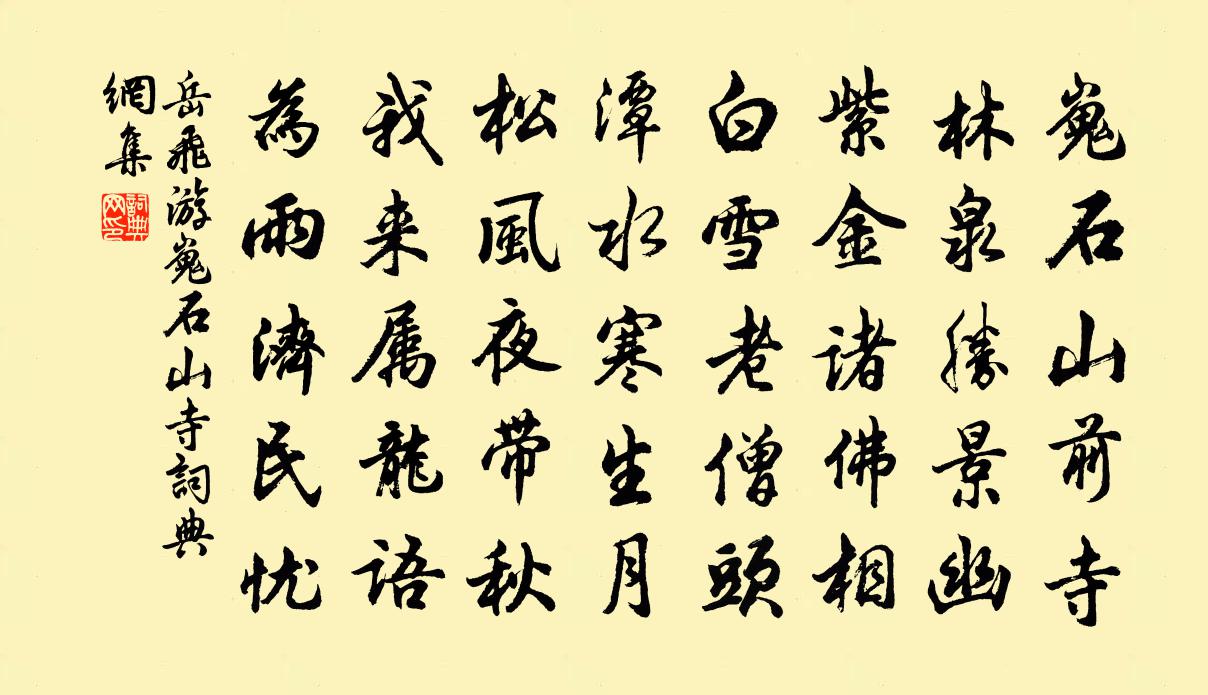 嵬石山前寺
林泉勝景幽
紫金諸佛相
白雪老僧頭
潭水寒生月
松風夜带秋
我来属龍語
為雨濟民忧
岳飛游嵬石山寺詞典
網集
詞典網印